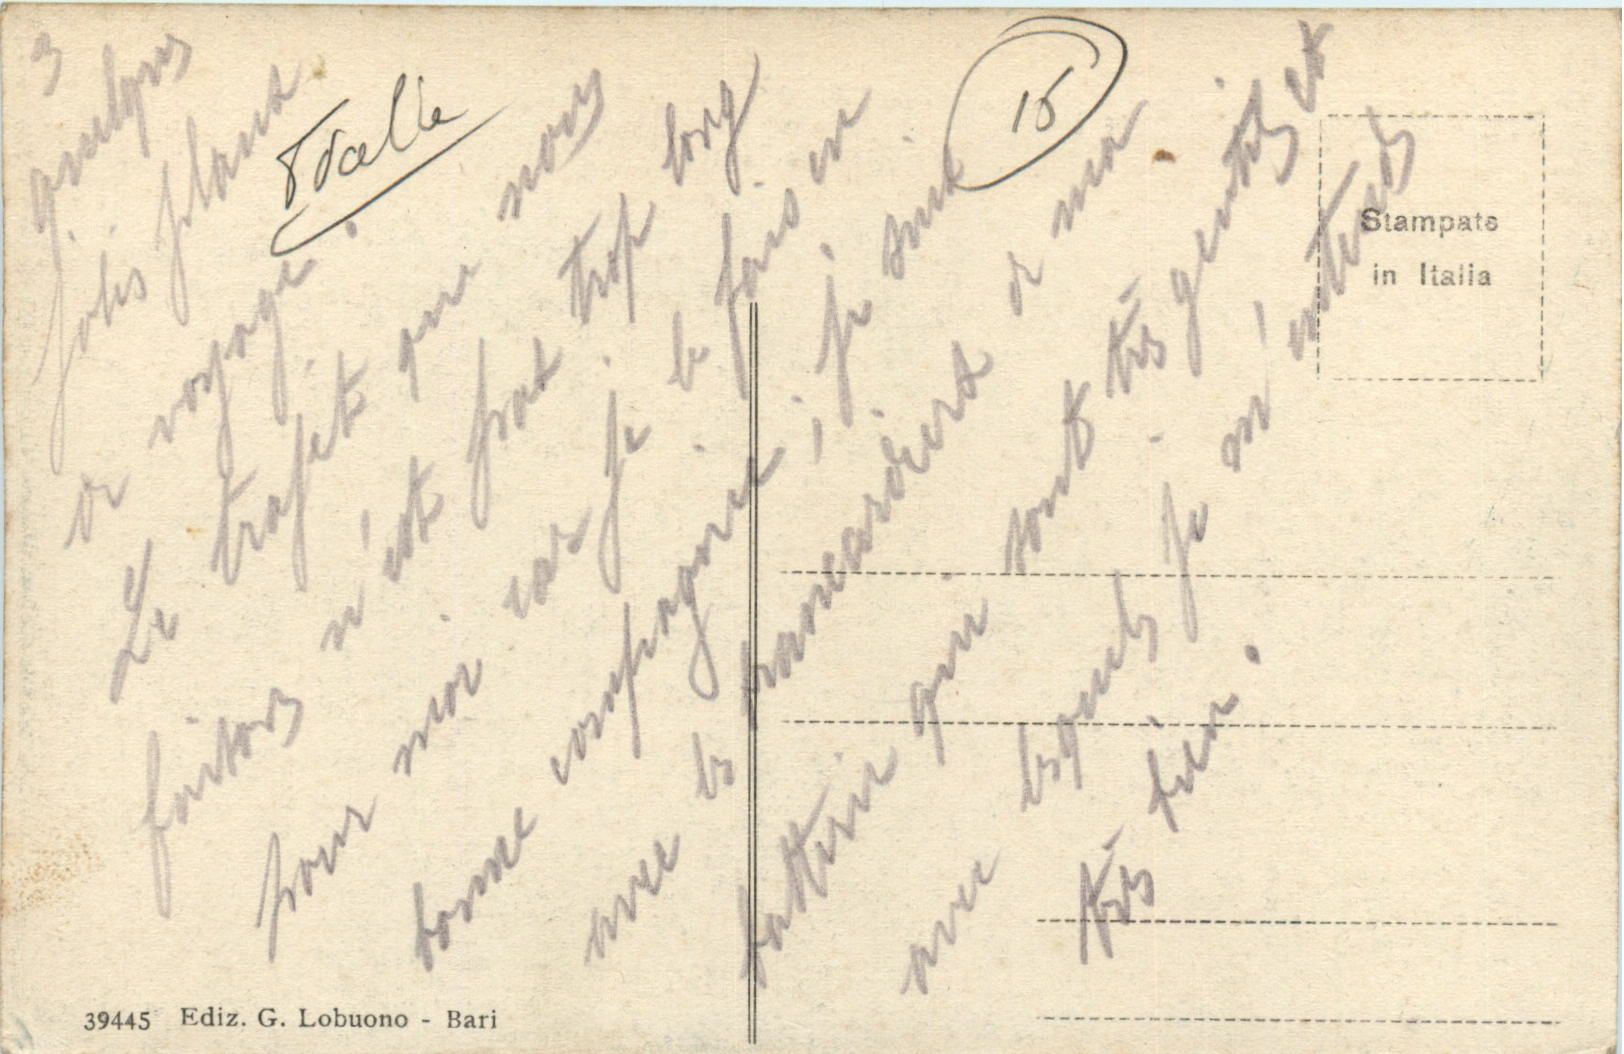 3
quelques
jolis plans
de voyage.
Le trajet que nous
faisons n'est pas trop long
pour moi car je le fais en
bonne compagnie; je suis
avec les brancardiers de ma
batterie qui sont très gentils et
avec lesquels je m'entends
très bien.
15
Stampate
in Italia
39445 Ediz. G. Lobuono - Bari